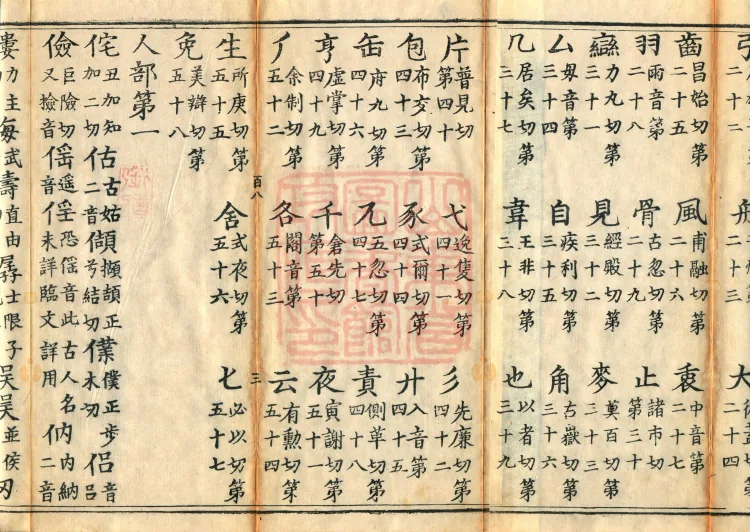 齒昌始切第二十五 風甫融切第二十六 衰中音第二十七
羽雨音第二十八 骨古忽切第二十九 止諸市切第三十
䜌力丸切第三十一 見經殿切第三十二 麥莫百切第三十三
厶毋音第三十四 自疾利切第三十五 角古嶽切第三十六
几居矣切第三十七 韋王非切第三十八 也以者切第三十九
片普見切第四十 弋逸隻切第四十一 彡先廉切第四十二
包布交切第四十三 豕式爾切第四十四 廾入音第四十五
缶府九切第四十六 兀五忽切第四十七 責側革切第四十八
亨虛掌切第四十九 千倉先切第五十 夜寅謝切第五十一
𠂆余制切第五十二 各閣音第五十三 云有勳切第五十四
百八 三
生所庚切第五十五 舍式夜切第五十六 匕必以切第五十七
免美辯切第五十八
人部第一
侘丑加知加二切 估古姑二音 擷頡正兮結切 僕僕正步木切 侶呂音
儉巨險切又撿音 傜遥音 恐傜音此古人名未詳臨文詳用 㐻内納二音